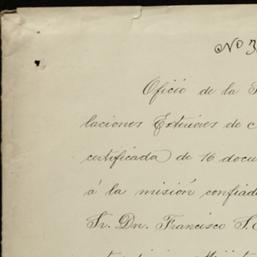 No 3
Oficio de la
laciones Exteriores de
certificada de 16 docu
á la misión confiad
Sr. Dn. Francisco S.